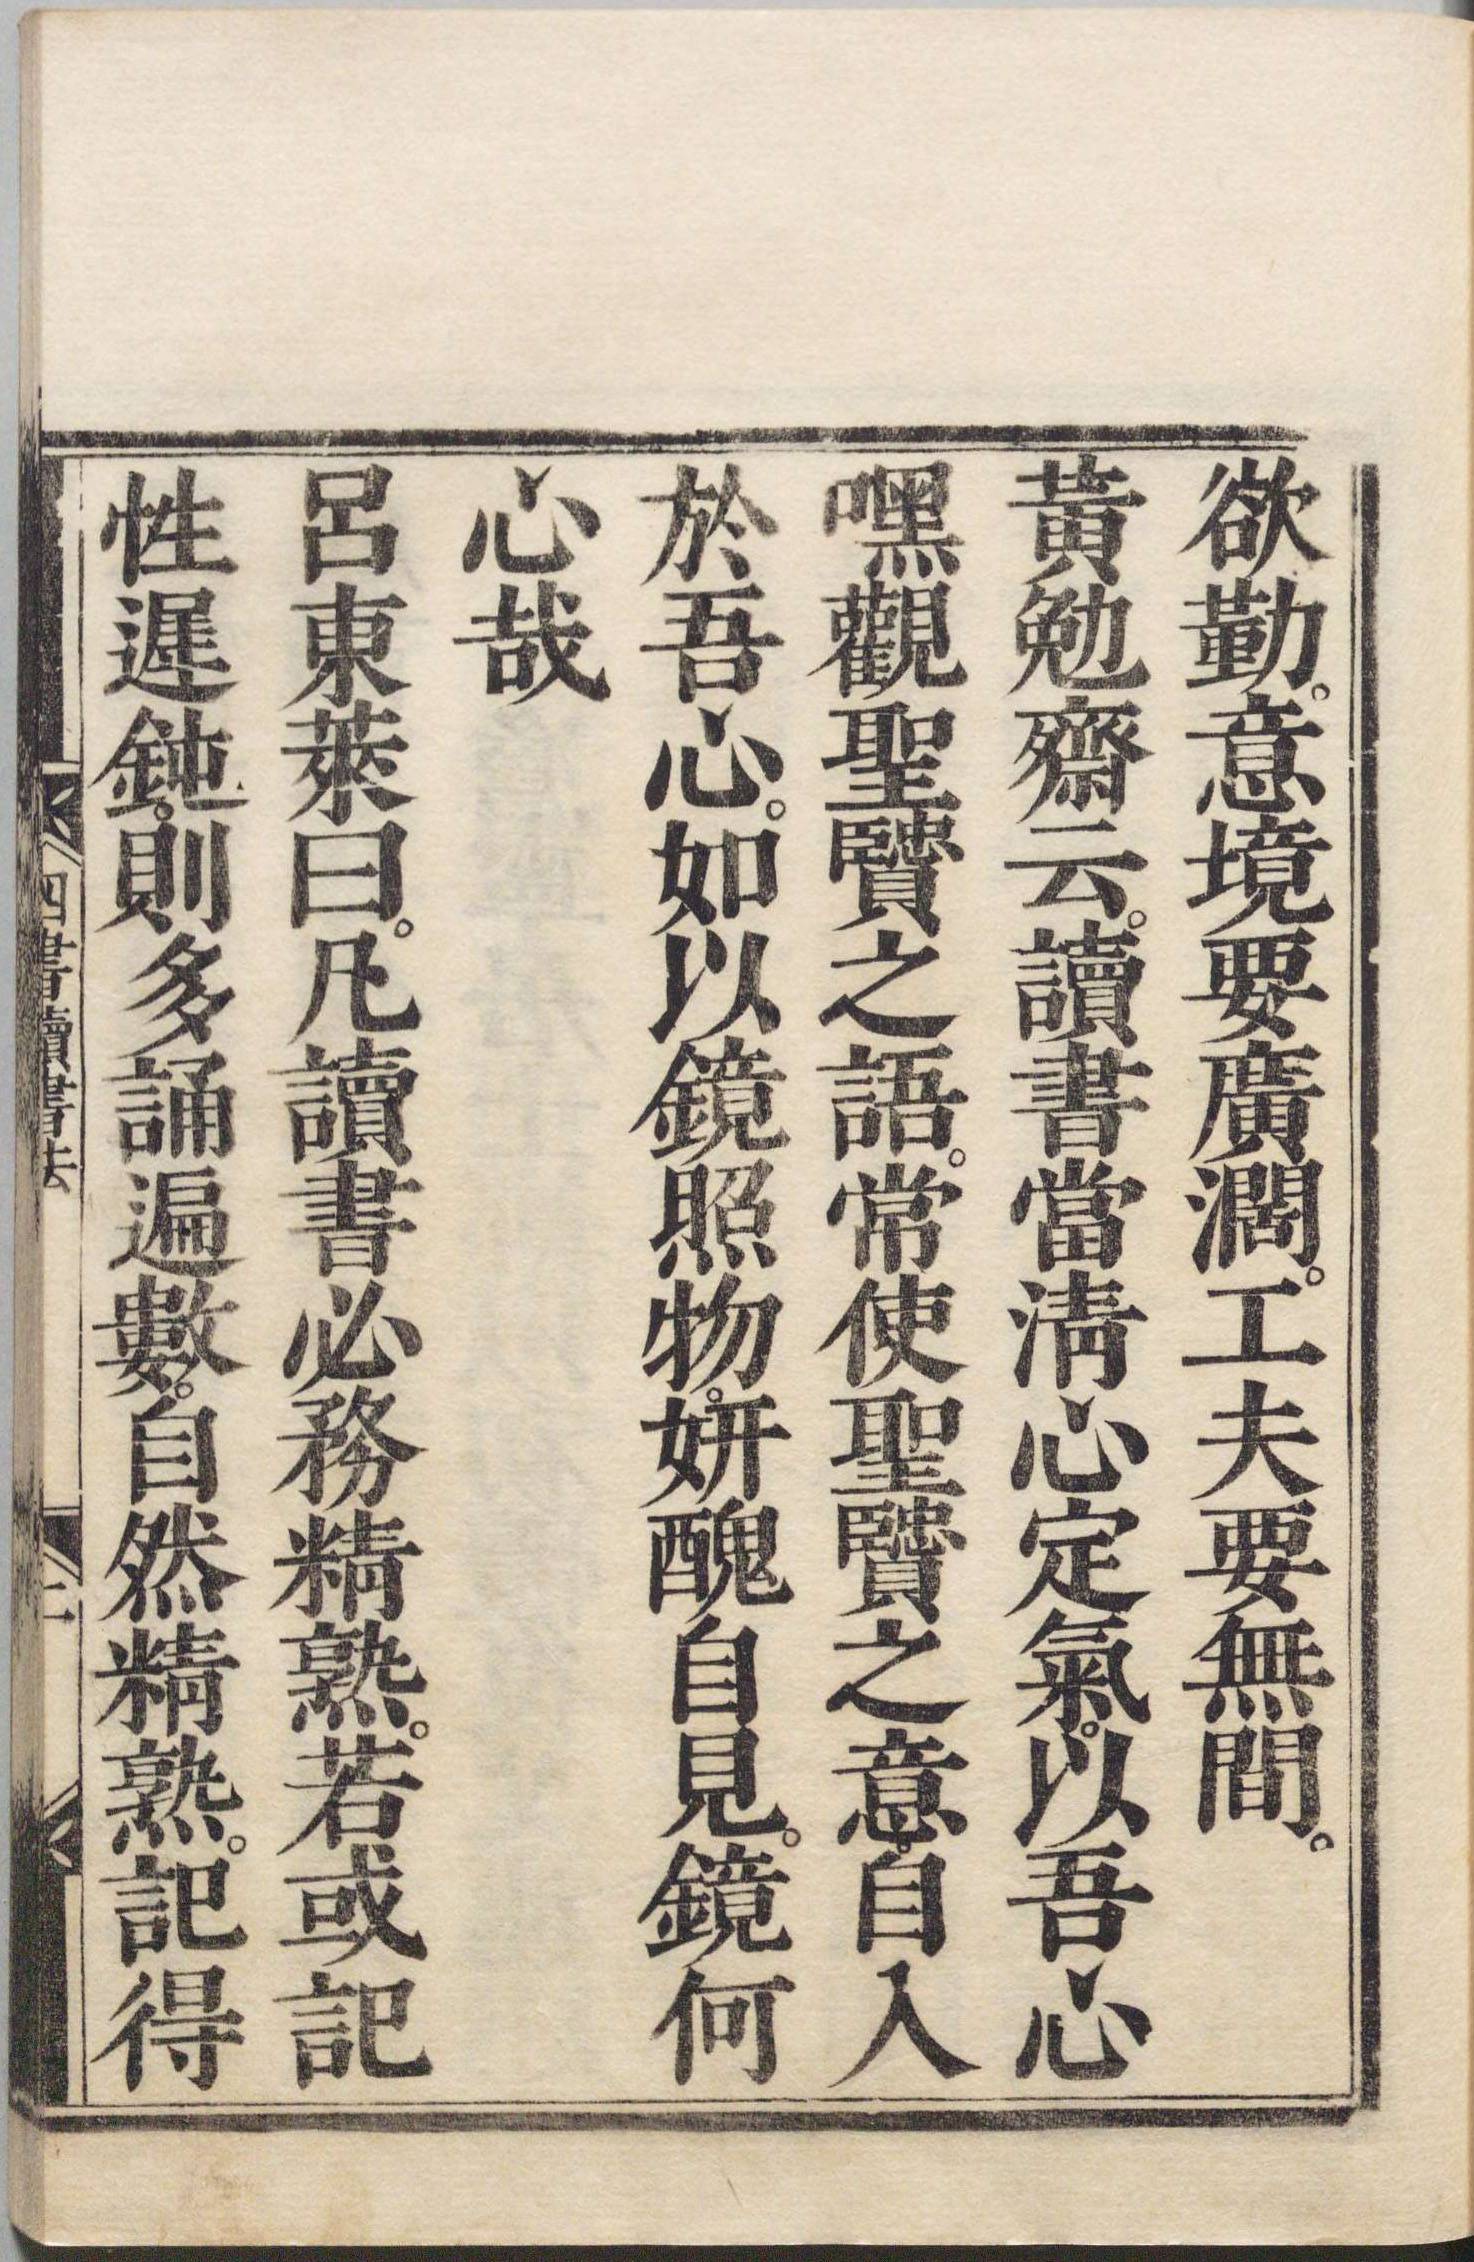 欲勤。意境要廣濶。工夫要無間。
黃勉齋云。讀書當淸心定氣。以吾心
嘿觀聖賢之語。常使聖賢之意。自入
於吾心。如以鏡照物。姸醜自見。鏡何
心哉
呂東萊曰。凡讀書必務精熟。若或記
性遲鈍。則多誦遍數。自然精熟。記得
四書讀書法
二